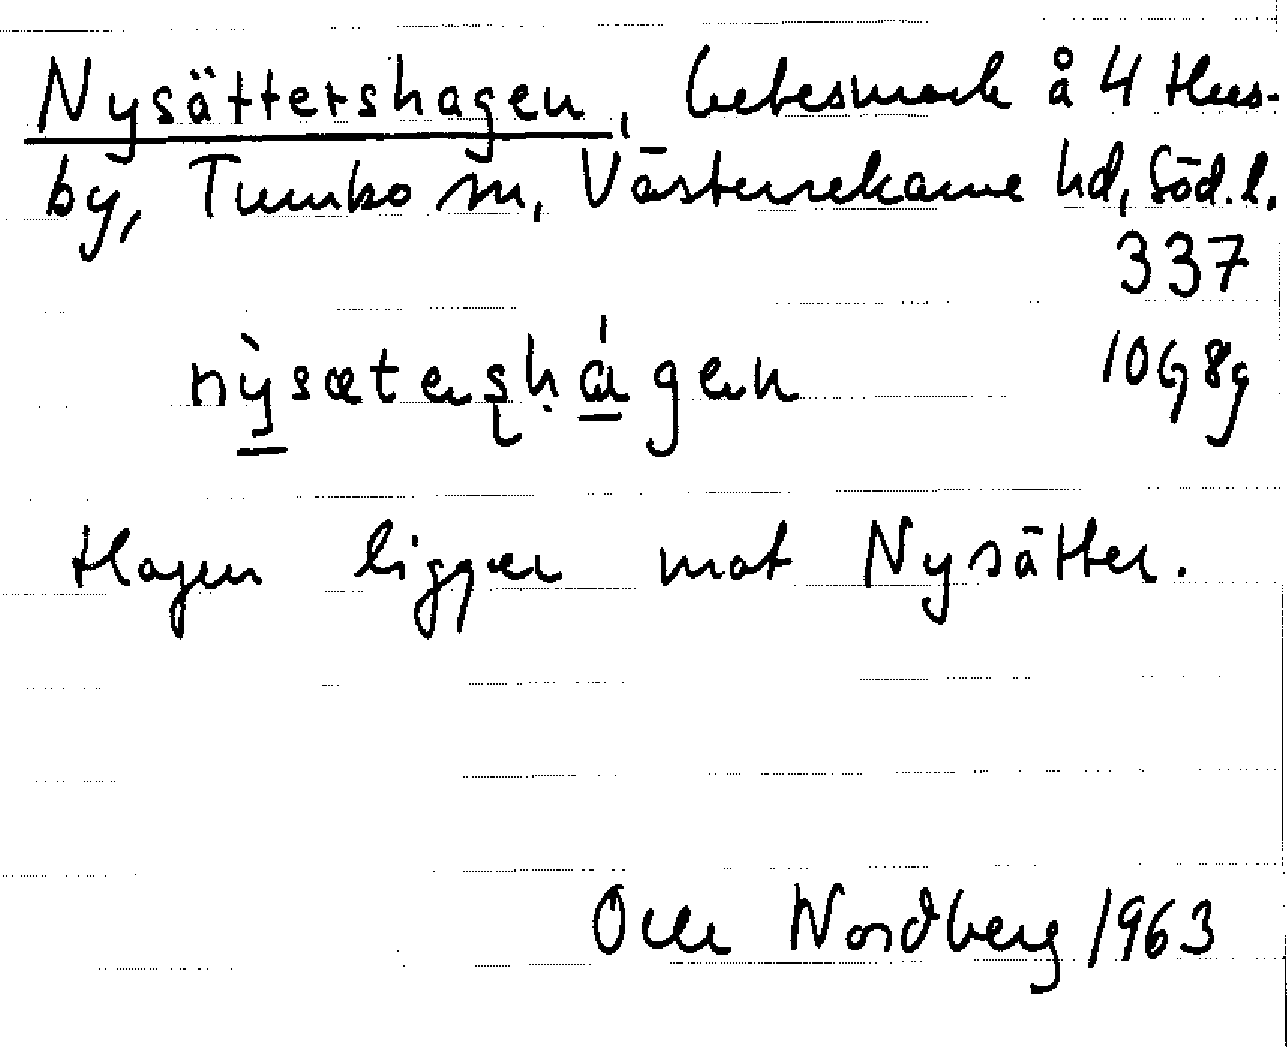 Nysättershagen, betesmark å 4 Hus-
by, Tumbo sn, Västerrekarne hd, Söd. l.
337
nỳsæteʂḥágen
10G8g
Hagen ligger mot Nysätter.
Olle Nordberg 1963